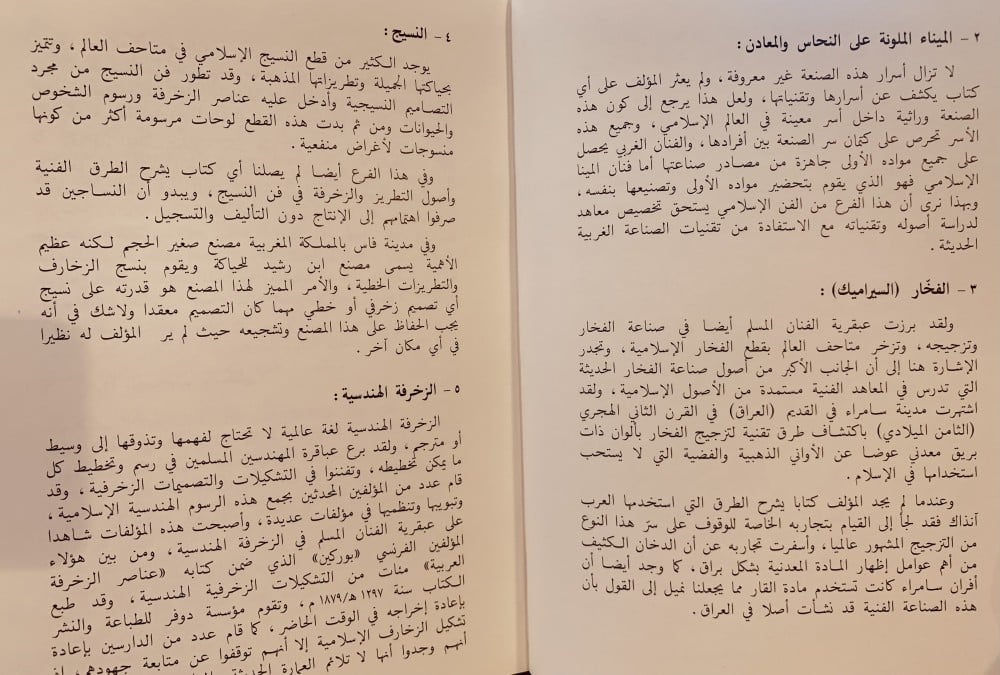 ٢ - الميناء الملونة على النحاس والمعادن :
لا تزال أسرار هذه الصنعة غير معروفة، ولم يعثر المؤلف على أي
كتاب يكشف عن أسرارها وتقنياتها، ولعل هذا يرجع إلى كون هذه
الصنعة وراثية داخل أسر معينة في العالم الإسلامي، وجميع هذه
الأسر تحرص على كتمان سر الصنعة بين أفرادها، والفنان الغربي يحصل
على جميع مواده الأولى جاهزة من مصادر صناعتها أما فنان المينا
الإسلامي فهو الذي يقوم بتحضير مواده الأولى وتصنيعها بنفسه،
وبهذا نرى أن هذا الفرع من الفن الإسلامي يستحق تخصيص معاهد
لدراسة أصوله وتقنياته مع الاستفادة من تقنيات الصناعة الغربية
الحديثة .
٣ - الفخّار (السيراميك) :
ولقد برزت عبقرية الفنان المسلم أيضا في صناعة الفخار
وتزجيجه، وتزخر متاحف العالم بقطع الفخار الإسلامية، وتجدر
الإشارة هنا إلى أن الجانب الأكبر من أصول صناعة الفخار الحديثة
التي تدرس في المعاهد الفنية مستمدة من الأصول الإسلامية، ولقد
اشتهرت مدينة سامراء في القديم (العراق) في القرن الثاني الهجري
(الثامن الميلادي) باكتشاف طرق تقنية لتزجيج الفخار بألوان ذات
بريق معدني عوضا عن الأواني الذهبية والفضية التي لا يستحب
استخدامها في الإسلام .
وعندما لم يجد المؤلف كتابا يشرح الطرق التي استخدمها العرب
آنذاك فقد لجأ إلى القيام بتجاربه الخاصة للوقوف على سرّ هذا النوع
من التزجيج المشهور عالميا، وأسفرت تجاربه عن أن الدخان الكثيف
من أهم عوامل إظهار المادة المعدنية بشكل براق، كما وجد أيضا أن
أفران سامراء كانت تستخدم مادة القار مما يجعلنا نميل إلى القول بأن
هذه الصناعة الفنية قد نشأت أصلا في العراق .
٤ - النسيج :
يوجد الكثير من قطع النسيج الإسلامي في متاحف العالم، وتتميز
بحياكتها الجميلة وتطريزاتها المذهبة، وقد تطور فن النسيج من مجرد
التصاميم النسيجية وأدخل عليه عناصر الزخرفة ورسوم الشخوص
والحيوانات ومن ثم بدت هذه القطع لوحات مرسومة أكثر من كونها
منسوجات لأغراض منفعية .
وفي هذا الفرع أيضا لم يصلنا أي كتاب يشرح الطرق الفنية
وأصول التطريز والزخرفة في فن النسيج، ويبدو أن النساجين قد
صرفوا اهتمامهم إلى الإنتاج دون التأليف والتسجيل .
وفي مدينة فاس بالمملكة المغربية مصنع صغير الحجم لكنه عظيم
الأهمية يسمى مصنع ابن رشيد للحياكة ويقوم بنسج الزخارف
والتطريزات الخطية، والأمر المميز لهذا المصنع هو قدرته على نسيج
أي تصميم زخرفي أو خطي مهما كان التصميم معقدا ولاشك في أنه
يجب الحفاظ على هذا المصنع وتشجيعه حيث لم ير المؤلف له نظيرا
في أي مكان آخر .
٥ - الزخرفة الهندسية :
الزخرفة الهندسية لغة عالمية لا تحتاج لفهمها وتذوقها إلى وسيط
أو مترجم، ولقد برع عباقرة المهندسين المسلمين في رسم وتخطيط كل
ما يمكن تخطيطه، وتفننوا في التشكيلات والتصميمات الزخرفية، وقد
قام عدد من المؤلفين المحدثين بجمع هذه الرسوم الهندسية الإسلامية،
وتبويبها وتنظيمها في مؤلفات عديدة، وأصبحت هذه المؤلفات شاهدا
على عبقرية الفنان المسلم في الزخرفة الهندسية، ومن بين هؤلاء
المؤلفين الفرنسي «بورگين» الذي ضمن كتابه «عناصر الزخرفة
العربية» مئات من التشكيلات الزخرفية الهندسية، وقد طبع
الكتاب سنة ١٢٩٧ هـ/١٨٧٩ م، وتقوم مؤسسة دوفر للطباعة والنشر
بإعادة إخراجه في الوقت الحاضر، كما قام عدد من الدارسين بإعادة
تشكيل الزخارف الإسلامية إلا أنهم توقفوا عن متابعة جهودهم،
أنهم وجدوا أنها لا تلائم العمارة الحديثة